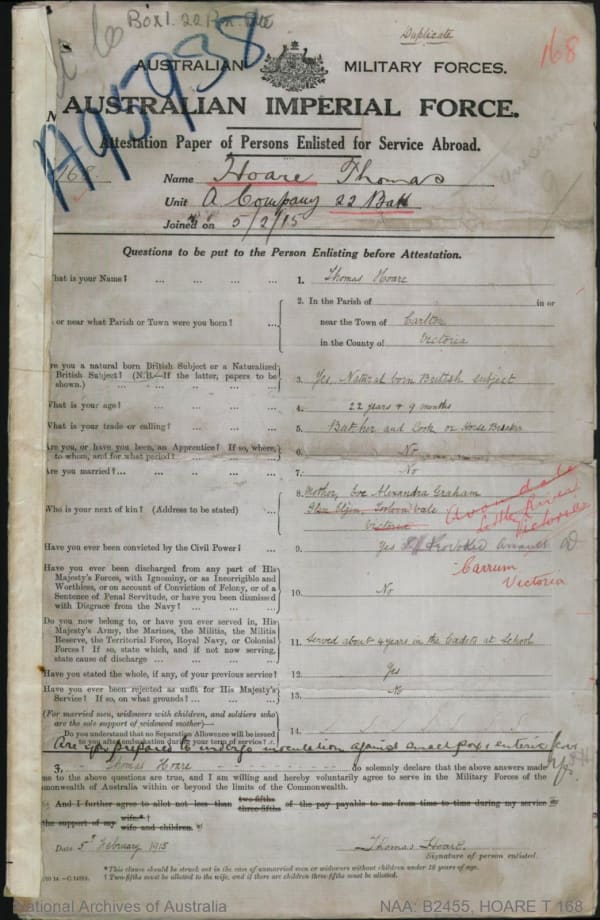 Box 1. 22
Duplicate
168
A95938
AUSTRALIAN MILITARY FORCES.
AUSTRALIAN IMPERIAL FORCE.
Attestation Paper of Persons Enlisted for Service Abroad.
168
Name Hoare Thomas
Unit A Company 22 Batt
Joined on 5/2/15
Questions to be put to the Person Enlisting before Attestation.
hat is your Name? ... ... ... ... 1. Thomas Hoare
2. In the Parish of in or
or near what Parish or Town were you born? ... near the Town of Carlton
in the County of Victoria
re you a natural born British Subject or a Naturalized
British Subject? (N.B.—If the latter, papers to be
shown.) ... ... ... ... 3. Yes, Natural born British subject
hat is your age? ... ... ... ... 4. 22 years & 9 months
hat is your trade or calling? ... ... ... 5. Butcher and Cook or Horse Breaker
Are you, or have you been, an Apprentice? If so, where,
to whom, and for what period? ... ... 6. No
Are you married?... ... ... ... ... 7. No
Who is your next of kin? (Address to be stated) ... 8. Mother, Alexandra Graham
Glen Elgin, Vale
Victoria
Avondale
Little River
Victoria
Have you ever been convicted by the Civil Power? ... 9. Yes Provoked Assault
Carrum
Victoria
Have you ever been discharged from any part of His
Majesty's Forces, with Ignominy, or as Incorrigible and
Worthless, or on account of Conviction of Felony, or of a
Sentence of Penal Servitude, or have you been dismissed
with Disgrace from the Navy? ... ... ... 10. No
Do you now belong to, or have you ever served in, His
Majesty's Army, the Marines, the Militia, the Militia
Reserve, the Territorial Force, Royal Navy, or Colonial
Forces? If so, state which, and if not now serving,
state cause of discharge ... ... ... ... 11. Served about 4 years in the Cadets at School
Have you stated the whole, if any, of your previous service? 12. Yes
Have you ever been rejected as unfit for His Majesty's
Service? If so, on what grounds? ... ... ... 13. No
(For married men, widowers with children, and soldiers who
are the sole support of widowed mother)—
Do you understand that no Separation Allowance will be issued
to you after embarkation during your term of service? 14.
Are you prepared to undergo inoculation against small pox & enteric fever
I, Thomas Hoare do solemnly declare that the above answers made
me to the above questions are true, and I am willing and hereby voluntarily agree to serve in the Military Forces of the
monwealth of Australia within or beyond the limits of the Commonwealth.
And I further agree to allot not less than two-fifths three-fifths of the pay payable to me from time to time during my service
the support of my wife.* wife and children.
Date 5th February 1915 Thomas Hoare.
Signature of person enlisted.
*This clause should be struck out in the case of unmarried men or widowers without children under 18 years of age.
† Two-fifths must be allotted to the wife, and if there are children three-fifths must be allotted.
National Archives of Australia NAA: B2455, HOARE T 168